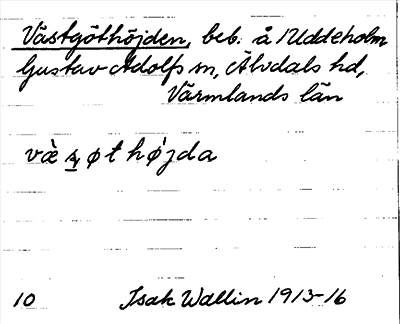 Västgöthöjden, beb. å /Uddeholm
Gustav Adolfs sn, Älvdals hd,
Värmlands län
10 Isak Wallin 1913-16